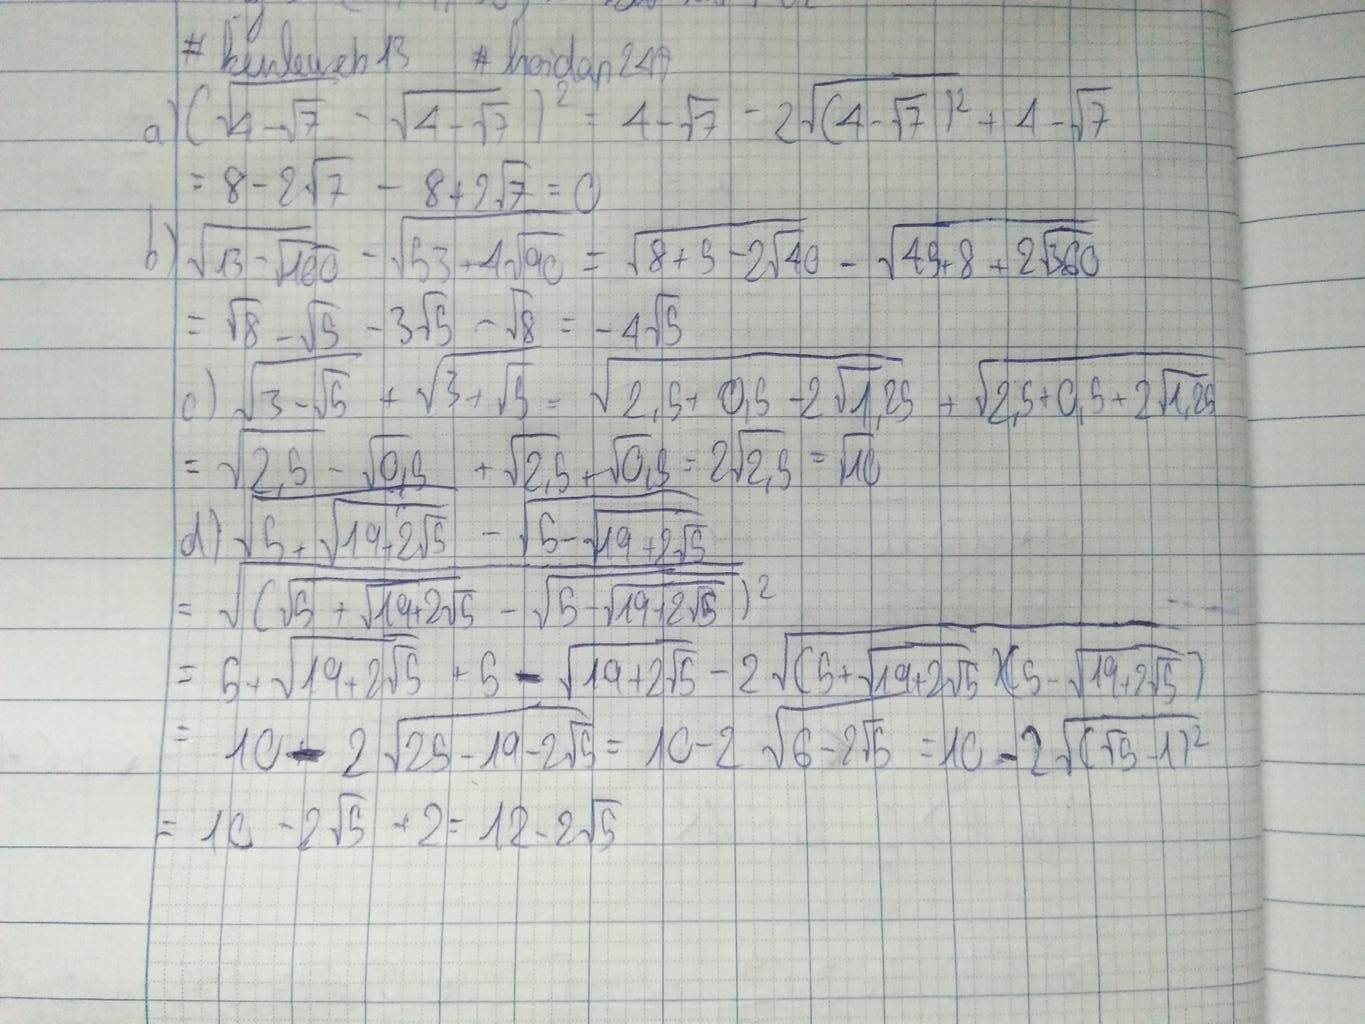 # kenleweb13 # hoidap247
a) (√(4-√7) - √(4-√7))² = 4-√7 - 2√((4-√7)²) + 4-√7
= 8-2√7 - 8+2√7 = 0
b) √(13-√160) - √(53+4√90) = √(8+5-2√40) - √(45+8+2√360)
= √8 - √5 - 3√5 - √8 = -4√5
c) √(3-√5) + √(3+√5) = √(2,5+0,5-2√1,25) + √(2,5+0,5+2√1,25)
= √2,5 - √0,5 + √2,5 + √0,5 = 2√2,5 = √10
d) √(5+√(19+2√5)) - √(5-√(19+2√5))
= √((√(5+√(19+2√5)) - √(5-√(19+2√5)))²)
= 5+√(19+2√5) + 5 - √(19+2√5) - 2√((5+√(19+2√5))(5-√(19+2√5)))
= 10 - 2√(25-19-2√5) = 10-2√(6-2√5) = 10-2√((√5-1)²)
= 10-2√5+2 = 12-2√5